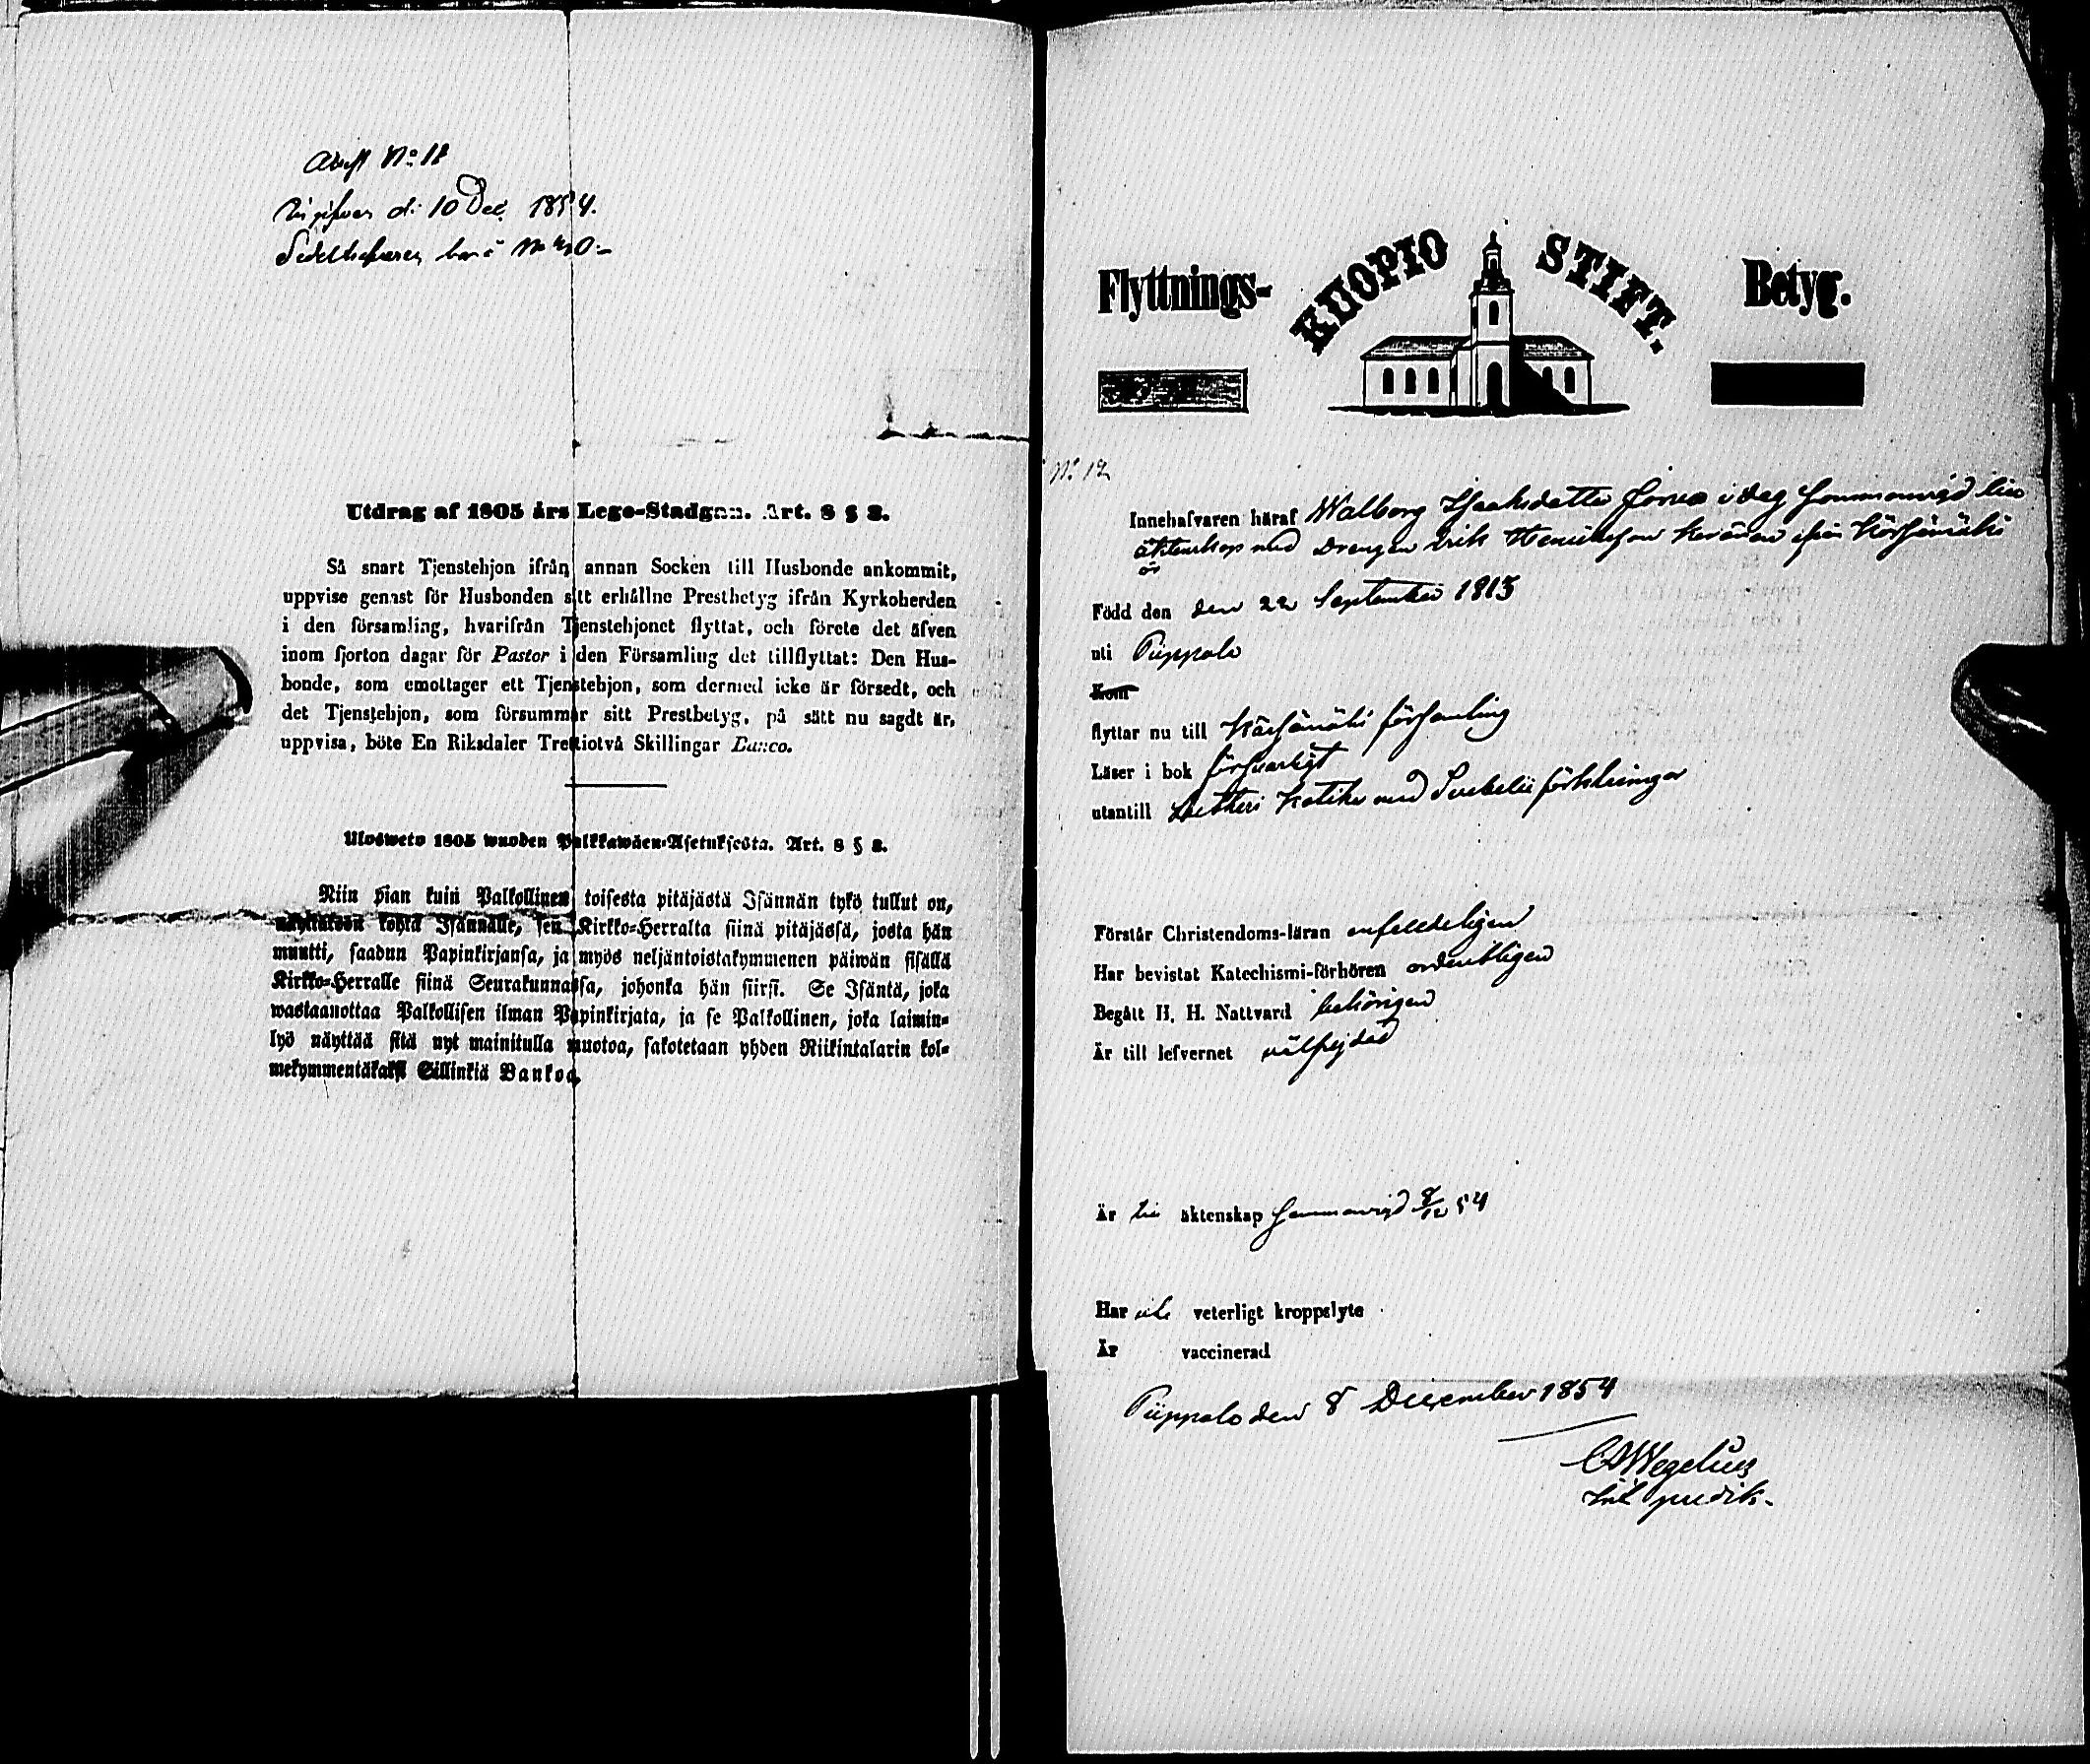 Attest No 18
Uppgifver d: 10 Dec. 1854.
Sedelhafvaren
Utdrag af 1805 års Lego-Stadgan. Art. 8 § 2.
Så snart Tjenstehjon ifrån annan Socken till Husbonde ankommit,
uppvise genast för Husbonden sitt erhållne Prestbetyg ifrån Kyrkoherden
i den församling, hvarifrån Tjenstehjonet flyttat, och förete det äfven
inom fjorton dagar för Pastor i den Församling det tillflyttat: Den Hus-
bonde, som emottager ett Tjenstehjon, som dermed icke är försedt, och
det Tjenstehjon, som försummar sitt Prestbetyg, på sätt nu sagdt är,
uppvisa, böte En Riksdaler Trettiotvå Skillingar Banco.
Ulosweto 1805 wuoden Palkkawäen-Asetuksesta. Art. 8 § 2.
Niin pian kuin Palkollinen toisesta pitäjästä Isännän tykö tullut on,
näyttäköön kohta Isännälle, sen Kirkko-Herralta siinä pitäjässä, josta hän
muutti, saadun Papinkirjansa, ja myös neljäntoistakymmenen päiwän sisällä
Kirkko-Herralle siinä Seurakunnassa, johonka hän siirsi. Se Isäntä, joka
wastaanottaa Palkollisen ilman Papinkirjata, ja se Palkollinen, joka laimin-
lyö näyttää sitä nyt mainitulla muotoa, sakotetaan yhden Riikintalarin kol-
mekymmentäkaksi Sillinkiä Bankoa.
Flyttnings- KUOPIO STIFT. Betyg.
No 12
Innehafvaren häraf Walborg Isaaksdotter i dag sammanvigd till
äktenskap med Drengen Erik Henriksson Keränen ifrån Kärsämäki
är
Född den den 22 September 1813
uti Piippola
Kom
flyttar nu till Kärsämäki församling
Läser i bok försvarligt
utantill Lutheri Katekes med Svebelii förklaringar
Förstår Christendoms-läran enfaldeligen
Har bevistat Katechismi-förhören ordentligen
Begått H. H. Nattvard behörigen
Är till lefvernet välfrejdad
Är till äktenskap sammanvigd 8/12 54
Har ick veterligt kroppslyte
Är vaccinerad
Piippola den 8 December 1854
C Wegelius
predik.